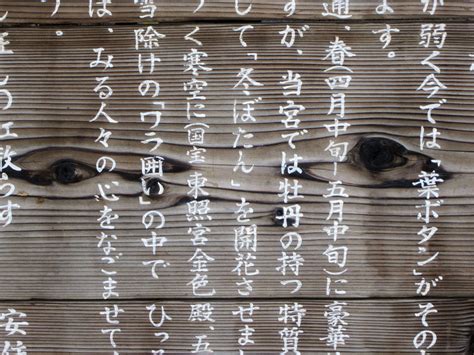 が弱く今では「葉ボタン」がその
ます。
通、春(四月中旬〜五月中旬)に豪華
すが、当宮では牡丹の持つ特質
て「冬ぼたん」を開花させま
く寒空に(国宝東照宮金色殿、五
雪除けの「ワラ囲い」の中で ひっ
ば、みる人々の心をなごませて
う。